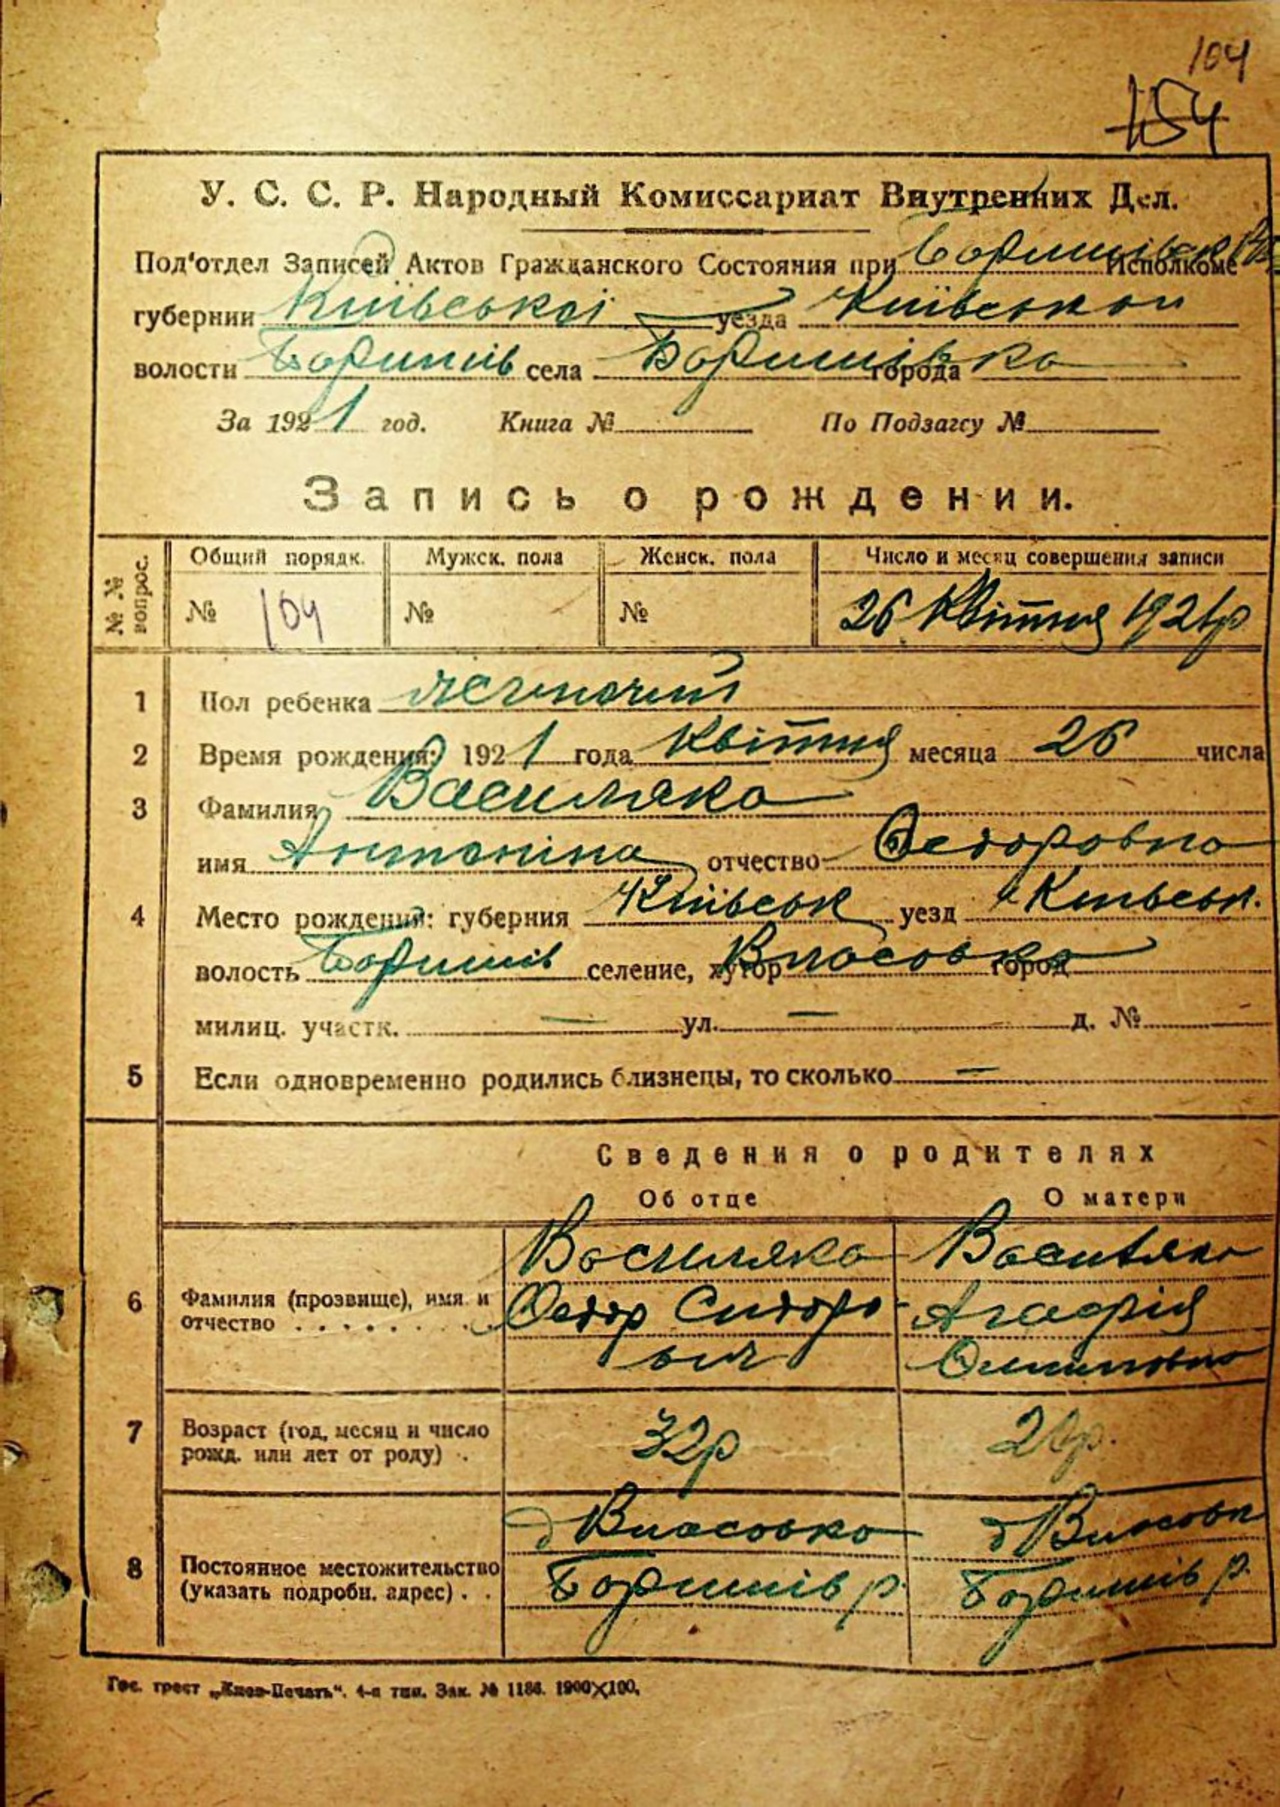 104
154
У. С. С. Р. Народный Комиссариат Внутренних Дел.
Под'отдел Записей Актов Гражданского Состояния при Исполкоме
губернии Київської уезда Київськой
волости Боришів села Боришівка города
За 1921 год. Книга № По Подзагсу №
Запись о рождении.
№ № вопрос. Общий порядк. Мужск. пола Женск. пола Число и месяц совершения записи
№ 104 № № 26 Квітня 1921р
1 Пол ребенка
2 Время рождения: 1921 года Квітня месяца 26 числа
3 Фамилия Василяка
имя Антоніна отчество Федоровна
4 Место рождения: губерния Київськ уезд Київськ.
волость Боришів селение, хутор Власовка город
милиц. участк. — ул. — д. №
5 Если одновременно родились близнецы, то сколько —
Сведения о родителях
Об отце О матери
6 Фамилия (прозвище), имя и отчество Василяка Василяка
Федор Сидоро- Агафія
вич
7 Возраст (год, месяц и число рожд. или лет от роду) 32р
8 Постоянное местожительство (указать подробн. адрес) д Власовка д Власовка
Боришів р. Боришів р.
Гос. трест „Киев-Печать“. 4-я тип. Зак. № 1186. 1900×100.